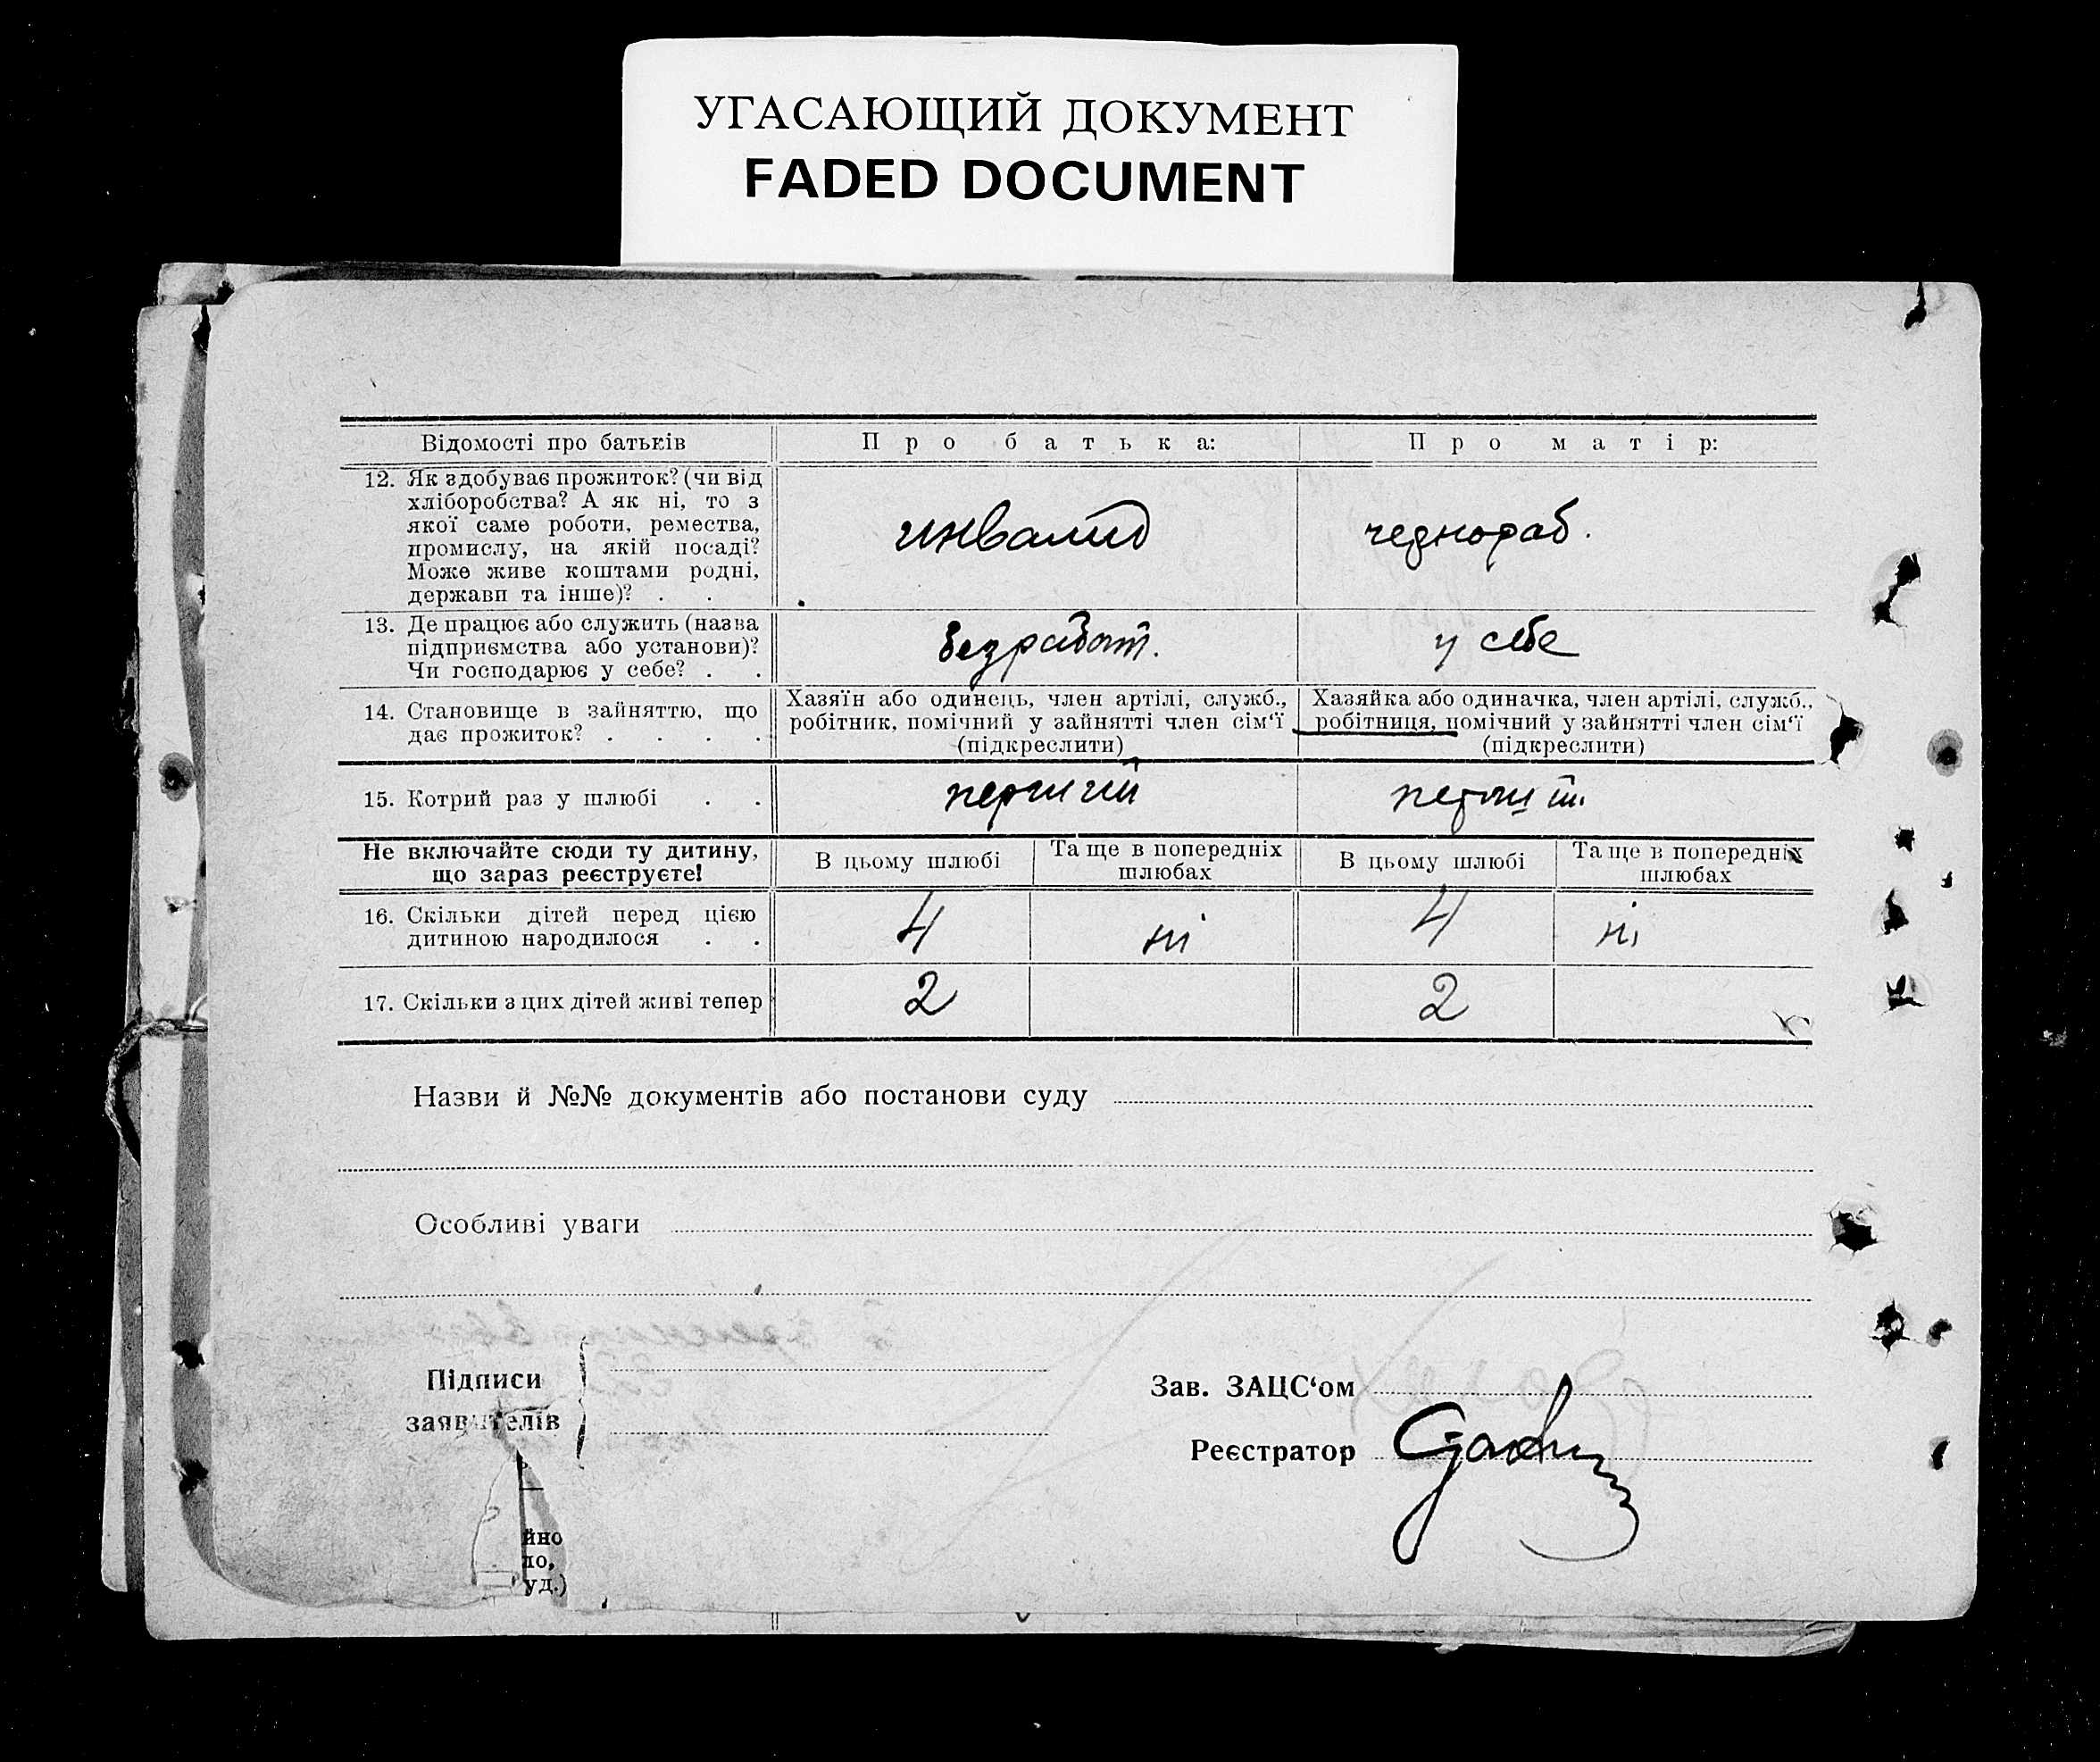 УГАСАЮЩИЙ ДОКУМЕНТ
FADED DOCUMENT
Відомості про батьків
Про батька:
Про матір:
12. Як здобуває прожиток? (чи від
хліборобства? А як ні, то з
якої саме роботи, ремества,
промислу, на якій посаді?
Може живе коштами родні,
держави та інше)? . .
инвалид
чернораб.
13. Де працює або служить (назва
підприємства або установи)?
Чи господарює у себе? . .
безработ.
у себе
14. Становище в зайняттю, що
дає прожиток? . . . .
Хазяїн або одинець, член артілі, служб.,
робітник, помічний у зайнятті член сім‘ї
(підкреслити)
Хазяйка або одиначка, член артілі, служб.,
робітниця, помічний у зайнятті член сім‘ї
(підкреслити)
15. Котрий раз у шлюбі . .
перший
перший
Не включайте сюди ту дитину,
що зараз реєструєте!
В цьому шлюбі
Та ще в попередніх
шлюбах
В цьому шлюбі
Та ще в попередніх
шлюбах
16. Скільки дітей перед цією
дитиною народилося . .
4
ні
4
ні
17. Скільки з цих дітей живі тепер
2
2
Назви й №№ документів або постанови суду
Особливі уваги
Підписи
заявителів
Зав. ЗАЦС‘ом
Реєстратор
йно
ло,
уд.)